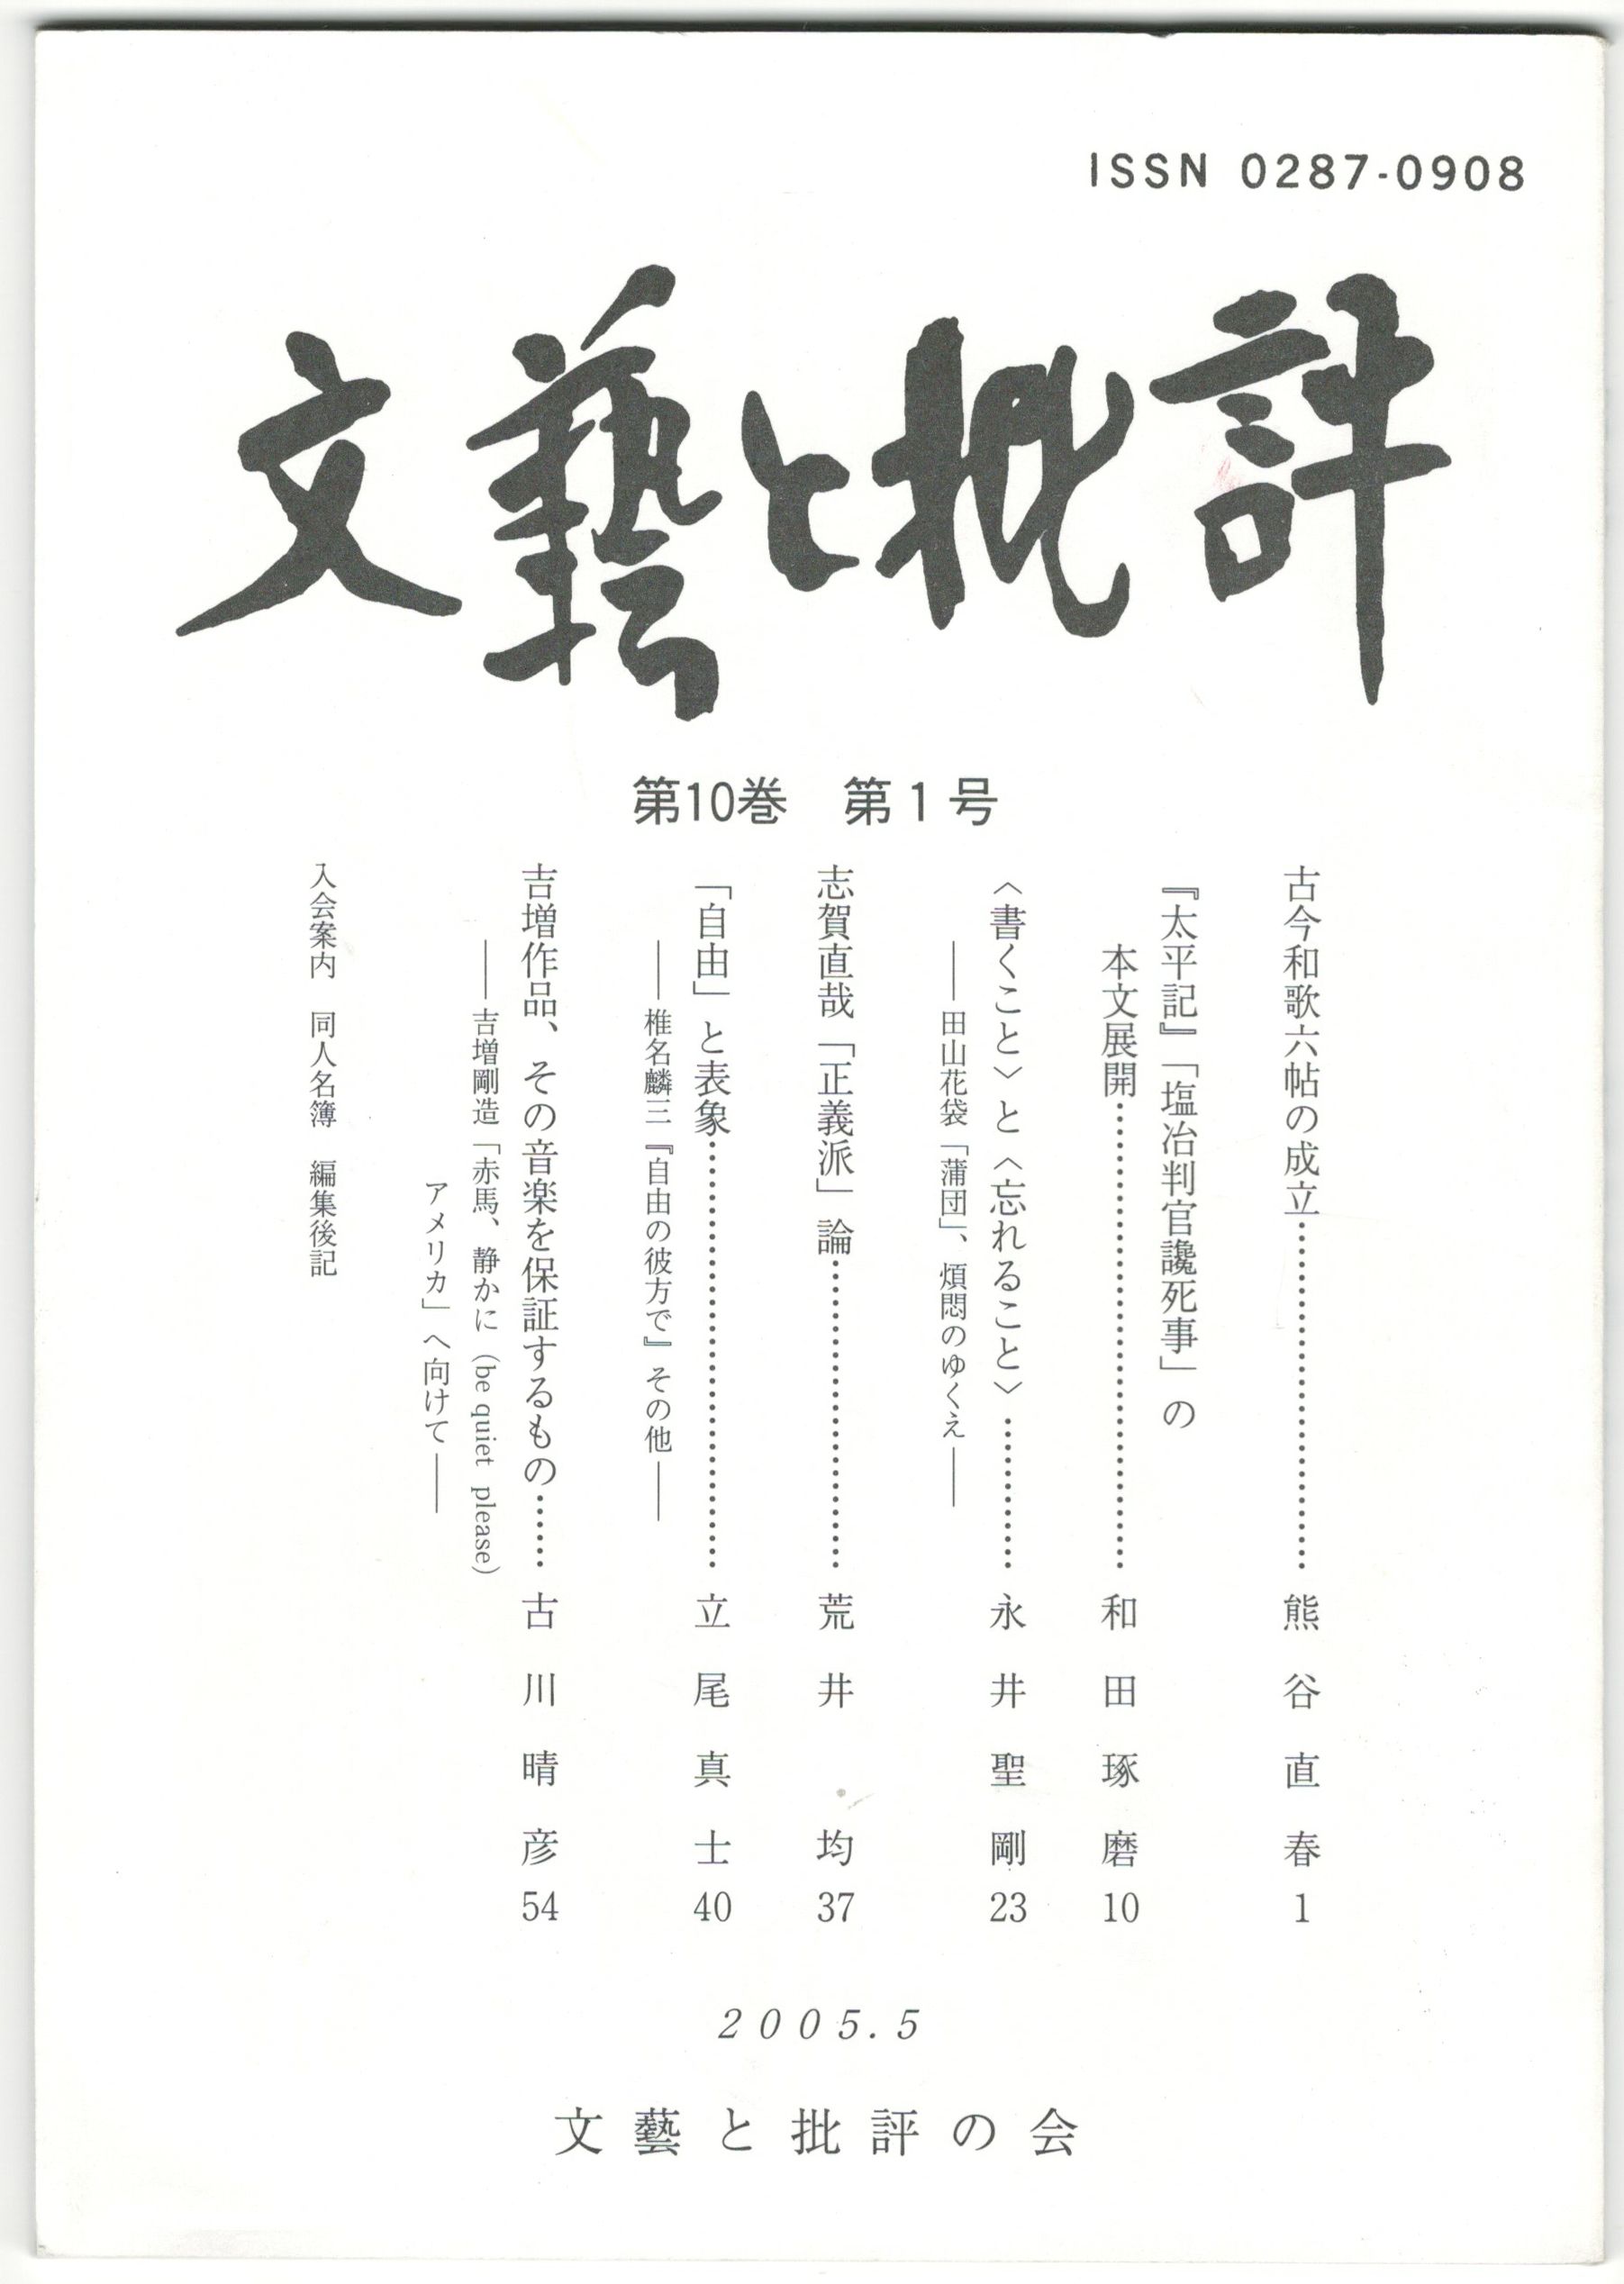 ISSN 0287-0908
文藝と批評
第10巻　第1号
古今和歌六帖の成立……………………熊谷直春 1
『太平記』「塩冶判官讒死事」の
本文展開……………………和田琢磨 10
〈書くこと〉と〈忘れること〉…………永井聖剛 23
――田山花袋「蒲団」、煩悶のゆくえ――
志賀直哉「正義派」論……………………荒井　均 37
「自由」と表象……………………立尾真士 40
――椎名麟三『自由の彼方で』その他――
吉増作品、その音楽を保証するもの……古川晴彦 54
――吉増剛造「赤馬、静かに（be quiet please）
アメリカ」へ向けて――
入会案内　同人名簿　編集後記
2005.5
文藝と批評の会